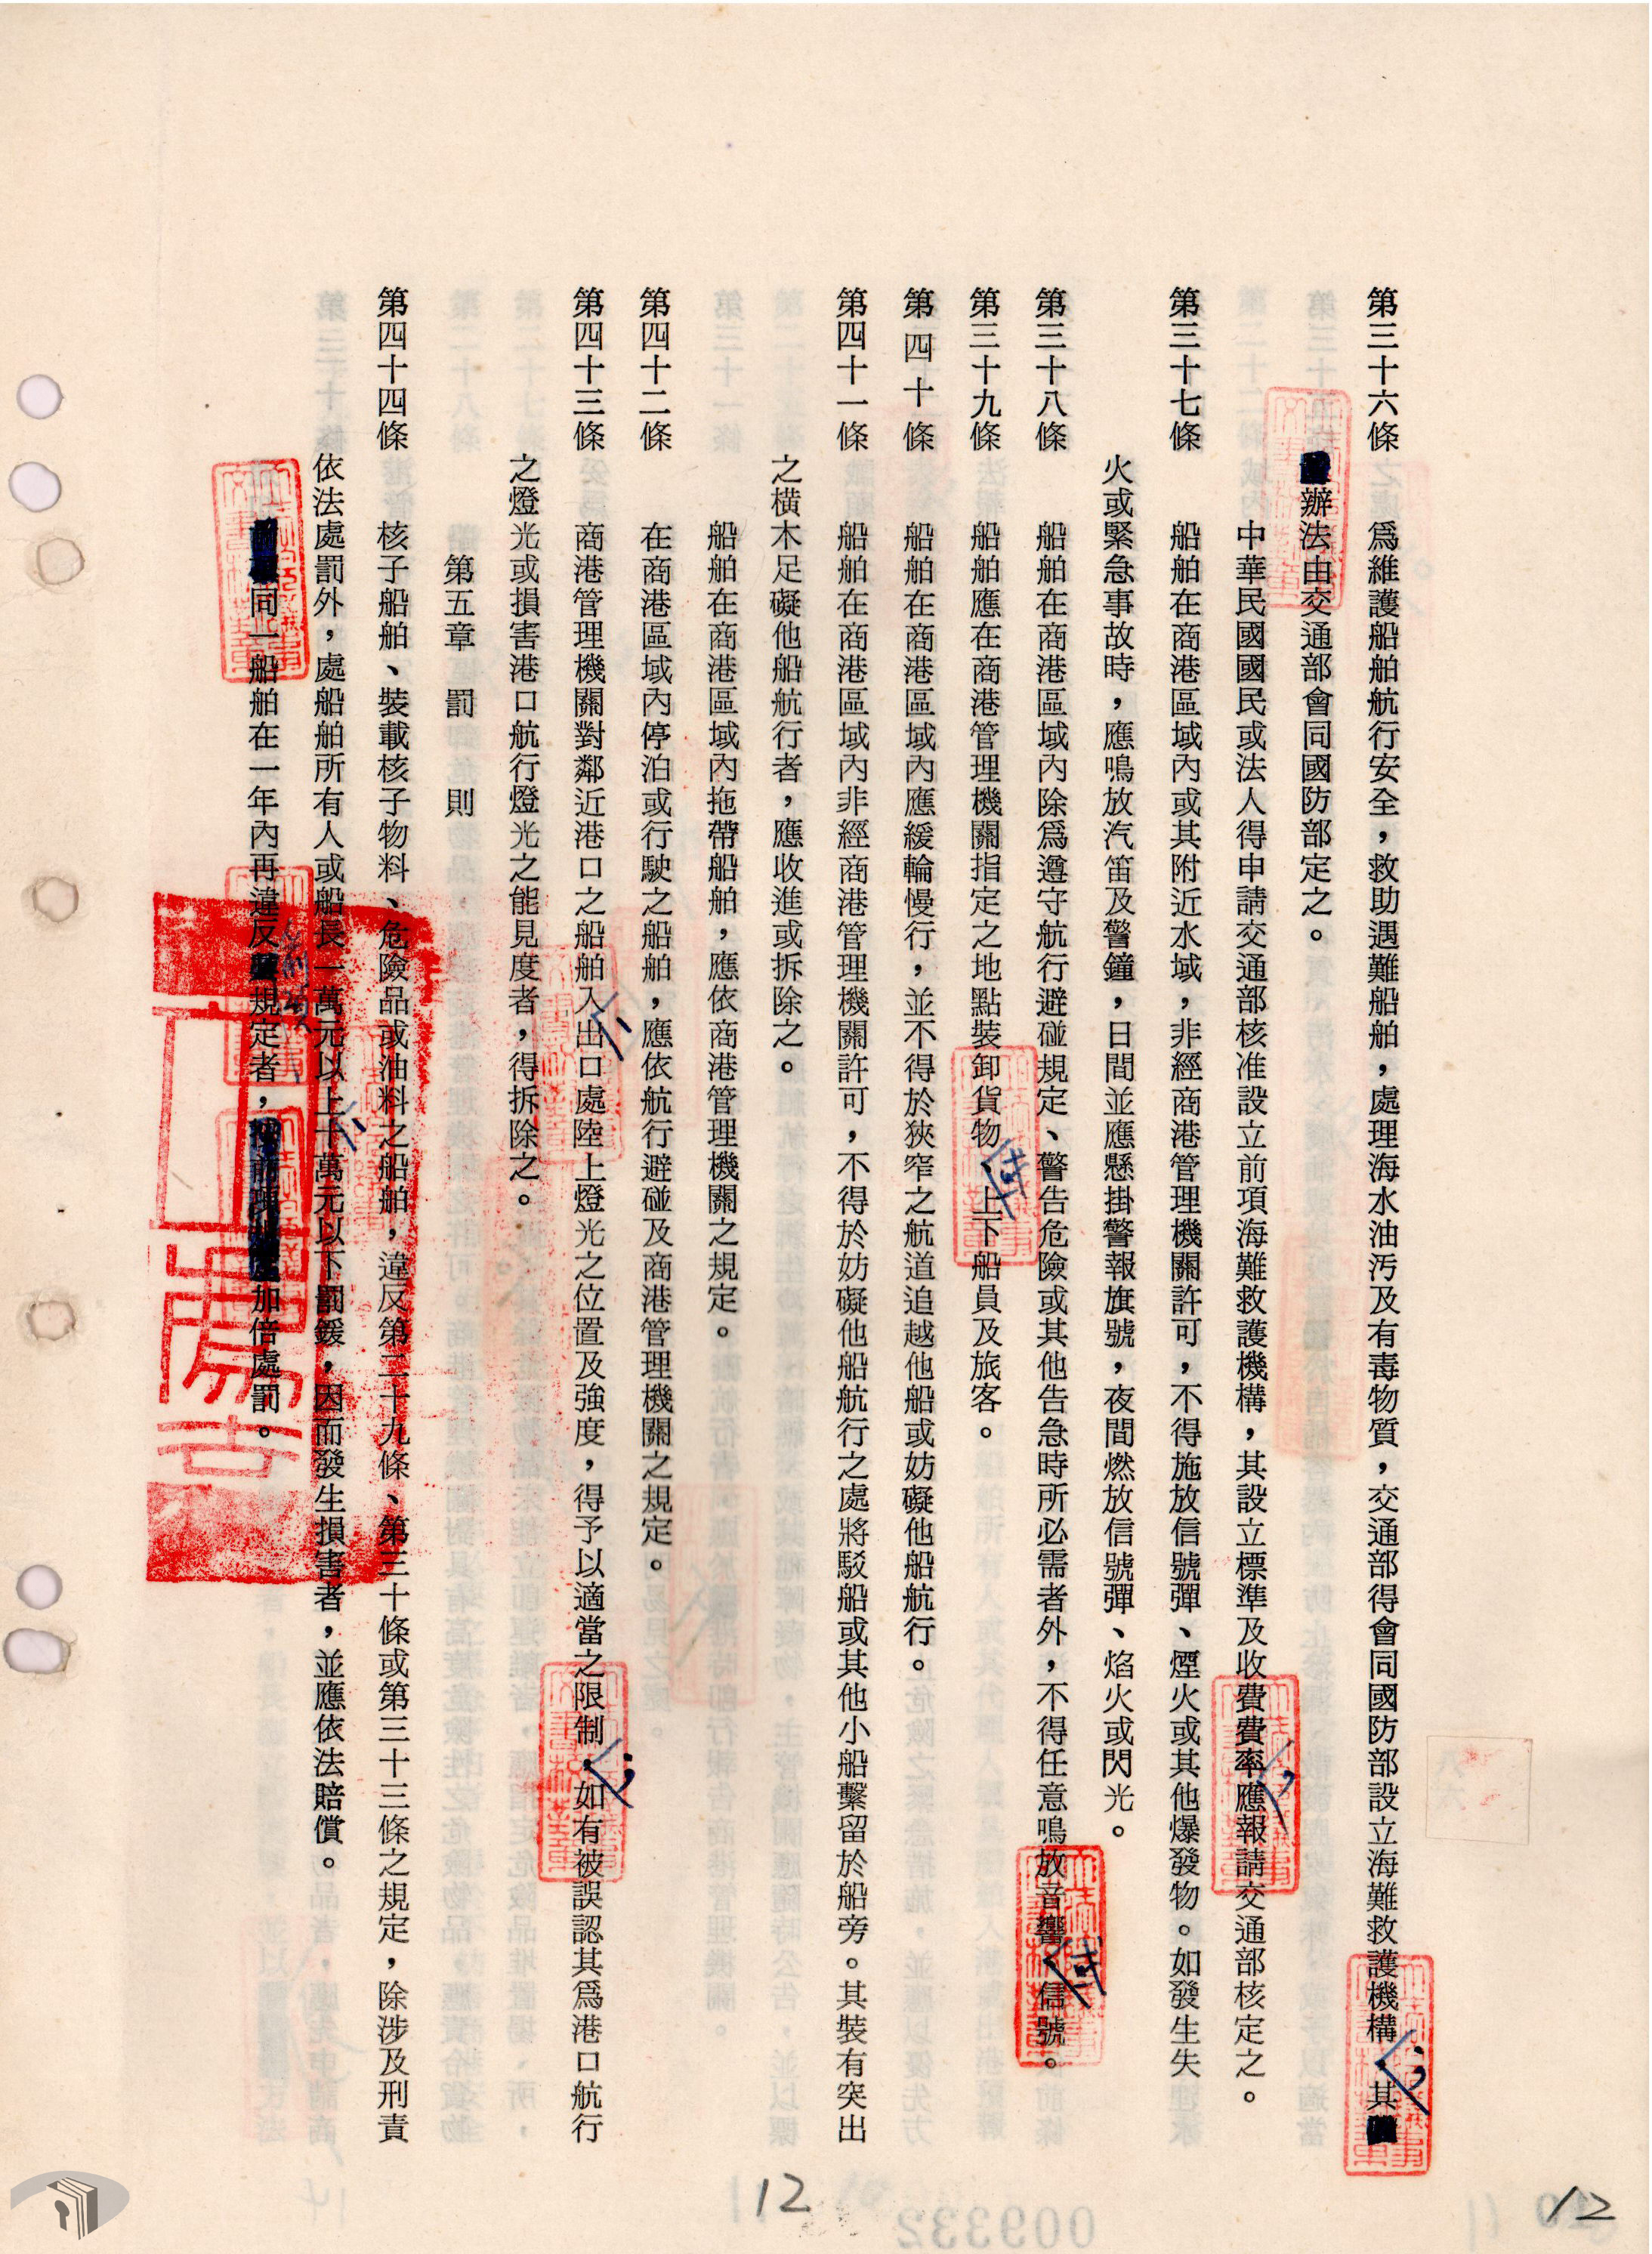 第三十六條　為維護船舶航行安全，救助遇難船舶，處理海水油污及有毒物質，交通部得會同國防部設立海難救護機構，其
辦法由交通部會同國防部定之。
中華民國國民或法人得申請交通部核准設立前項海難救護機構，其設立標準及收費費率，應報請交通部核定之。
第三十七條　船舶在商港區域內或其附近水域，非經商港管理機關許可，不得施放信號彈、煙火或其他爆發物。如發生失
火或緊急事故時，應鳴放汽笛及警鐘，日間並應懸掛警報旗號，夜間燃放信號彈、焰火或閃光。
第三十八條　船舶在商港區域內除為遵守航行避碰規定、警告危險或其他告急時所必需者外，不得任意鳴放音響或信號。
第三十九條　船舶應在商港管理機關指定之地點裝卸貨物或上下船員及旅客。
第四十條　船舶在商港區域內應緩輪慢行，並不得於狹窄之航道追越他船或妨礙他船航行。
第四十一條　船舶在商港區域內非經商港管理機關許可，不得於妨礙他船航行之處將駁船或其他小船繫留於船旁。其裝有突出
之橫木足礙他船航行者，應收進或拆除之。
船舶在商港區域內拖帶船舶，應依商港管理機關之規定。
第四十二條　在商港區域內停泊或行駛之船舶，應依航行避碰及商港管理機關之規定。
第四十三條　商港管理機關對鄰近港口之船舶入出口處陸上燈光之位置及強度，得予以適當之限制，如有被誤認其為港口航行
之燈光或損害港口航行燈光之能見度者，得拆除之。
第五章　罰則
第四十四條　核子船舶、裝載核子物料、危險品或油料之船舶，違反第二十九條、第三十條或第三十三條之規定，除涉及刑責
依法處罰外，處船舶所有人或船長一萬元以上、十萬元以下罰鍰，因而發生損害者，並應依法賠償。
同一船舶在一年內再違反前項規定者，加倍處罰。
12
12
009332